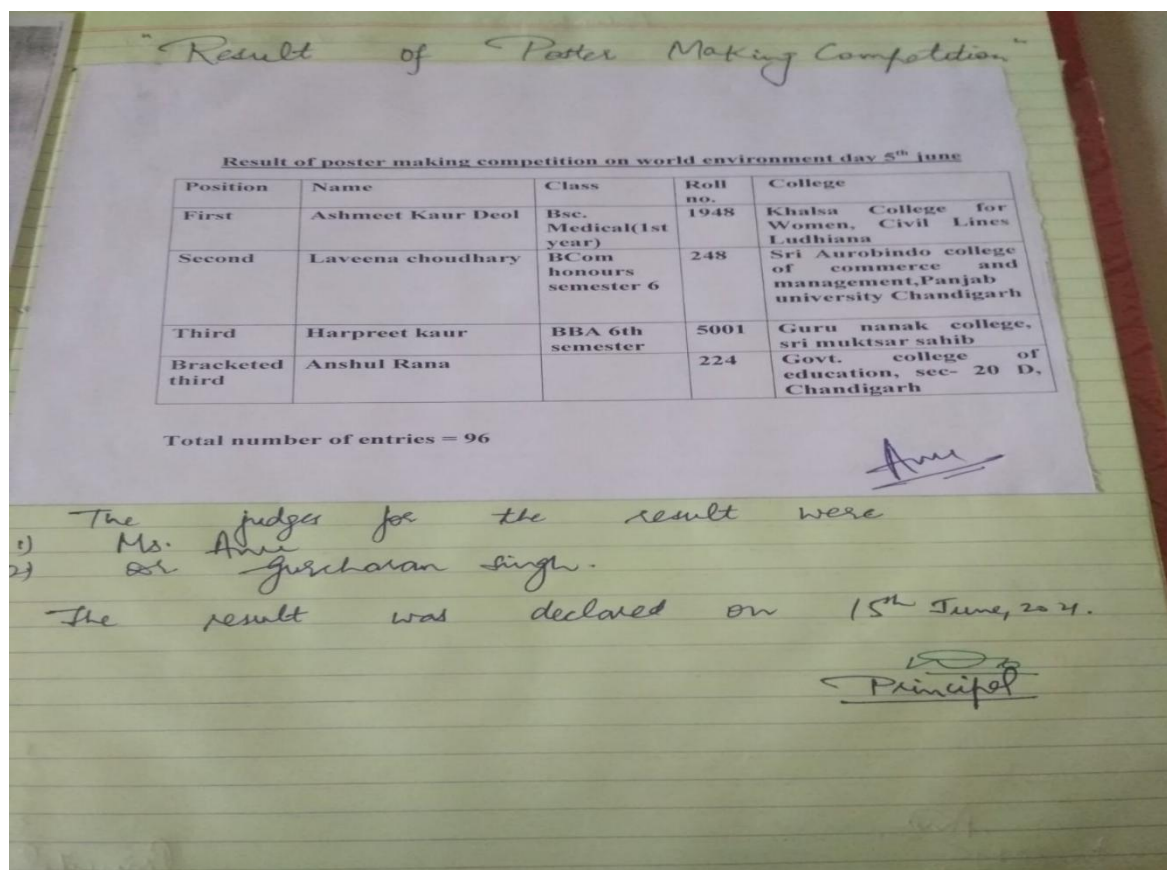 "Result of Poster Making Competition"
Result of poster making competition on world environment day 5th june
Position Name Class Roll no. College
First Ashmeet Kaur Deol Bsc. Medical(1st year) 1948 Khalsa College for Women, Civil Lines Ludhiana
Second Laveena choudhary BCom honours semester 6 248 Sri Aurobindo college of commerce and management,Panjab university Chandigarh
Third Harpreet kaur BBA 6th semester 5001 Guru nanak college, sri muktsar sahib
Bracketed third Anshul Rana 224 Govt. college of education, sec- 20 D, Chandigarh
Total number of entries = 96
Anu
The judges for the result were
1) Ms. Anu
2) Dr Gurcharan Singh.
The result was declared on 15th June, 2021.
Principal